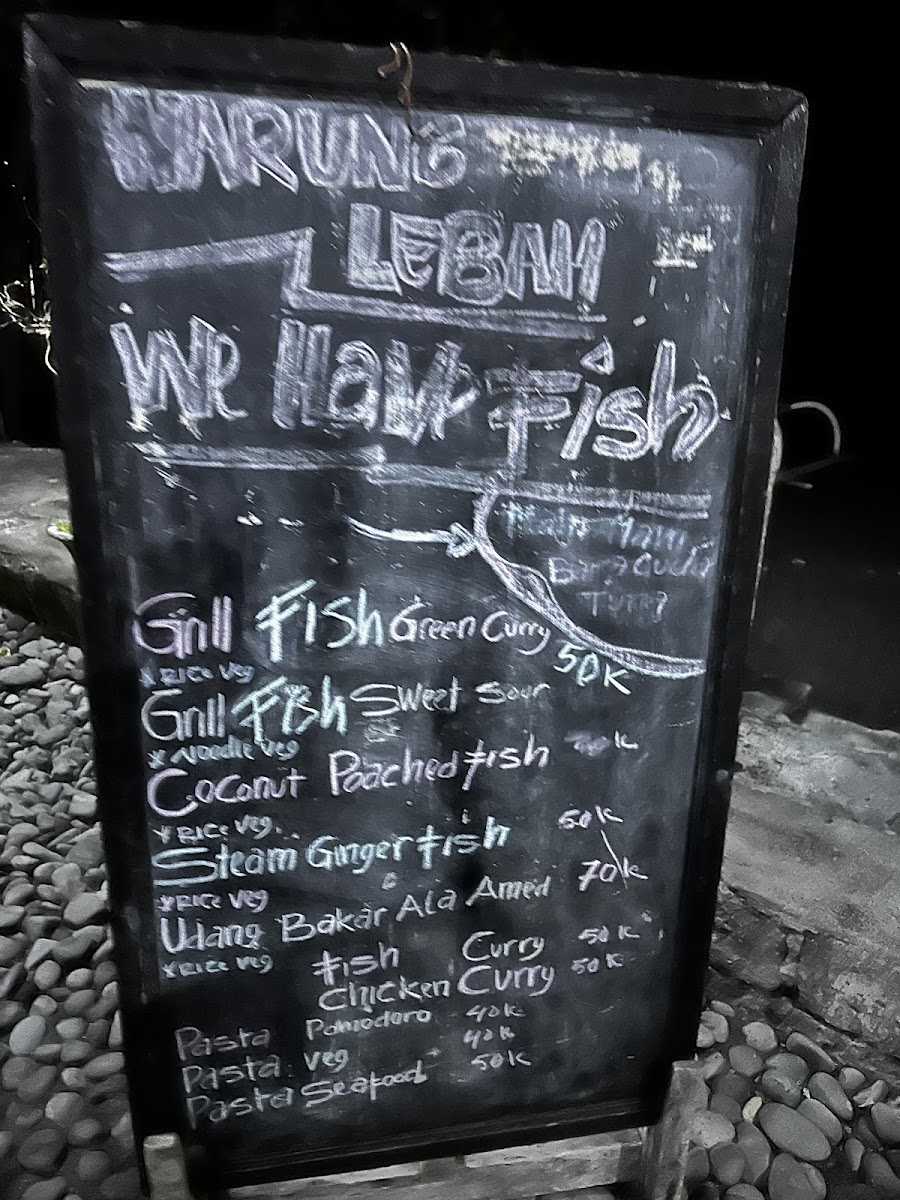 WARUNG
LEBAH
WE HAVE Fish
Mahi Mahi
BaraCuda
Tuna
Grill Fish Green Curry 50K
x Rice Veg
Grill Fish Sweet Sour
x Noodle Veg
Coconut Poached fish
x Rice Veg.
Steam Ginger fish 50K
x Rice Veg
Udang Bakar Ala Amed 70K
x Rice Veg
fish Curry 50K
Chicken Curry 50K
Pasta Pomodoro 40K
Pasta Veg 40K
Pasta Seafood 50K